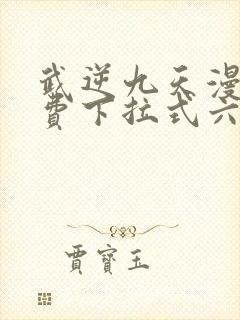 武逆九天漫
费下拉式六
賈寶玉